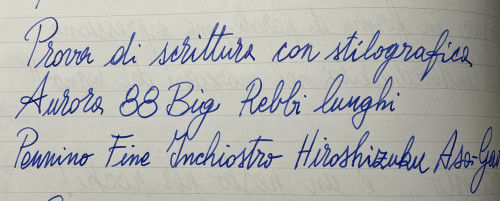 Prova di scrittura con stilografica
Aurora 88 Big Rebbi lunghi
Pennino Fine Inchiostro Hiroshizuku Asa-Gao